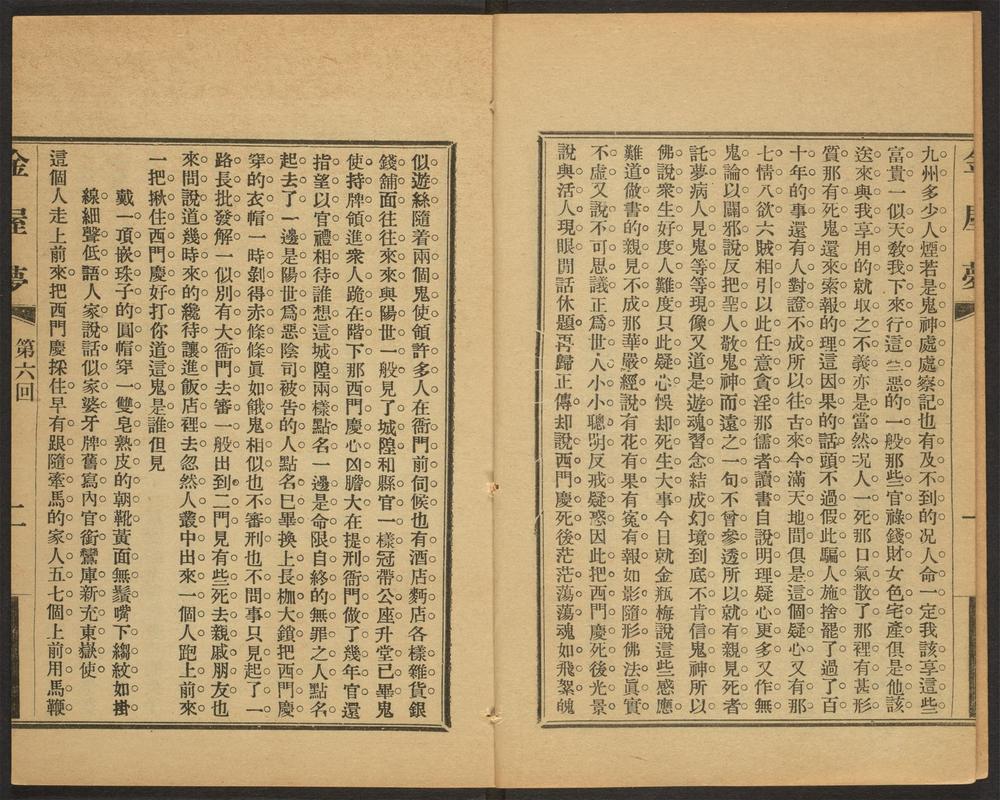 金屋夢
一
九州多少人煙若是鬼神處處察記也有及不到的况人命一定我該享這些
富貴一似天教我下來行這些惡的一般那些官祿錢財女色宅產俱是他該
送來與我享用的就取之不義亦是當然况人一死那口氣散了那裡有甚形
質那有死鬼還來索報的理這因果的話頭不過假此騙人施捨罷了過了百
十年的事還有人對證不成所以往古來今滿天地間俱是這個疑心又有那
七情八欲六賊相引以此任意貪淫那儒者讀書自說明理疑心更多又作無
鬼論以闢邪說反把聖人敬鬼神而遠之一句不曾參透所以就有親見死者
託夢病人見鬼等等現像又道是遊魂習念結成幻境到底不肯信鬼神所以
佛說衆生好度人難度只此疑心悞却死生大事今日就金瓶梅說這些感應
難道做書的親見不成那華嚴經說有花有果有寃有報如影隨形佛法眞實
不虛又說不可思議正爲世人小小聰明反戒疑惑因此把西門慶死後光景
說與活人現眼閒話休題再歸正傳却說西門慶死後茫茫蕩蕩魂如飛絮魄
似遊絲隨着兩個鬼使領許多人在衙門前伺候也有酒店麵店各樣雜貨銀
錢舖面往往來來與陽世一般見了城隍和縣官一樣冠帶公座升堂已畢鬼
使持牌領進衆人跪在階下那西門慶心凶膽大在提刑衙門做了幾年官還
指望以官禮相待誰想這城隍兩樣點名一邊是命限自終的無罪之人點名
起去了一邊是陽世爲惡陰司被告的人點名已畢換上長枷大鎖把西門慶
穿的衣帽一時剝得赤條條眞如餓鬼相似也不審刑也不問事只見起了一
路長批發解一似別有大衙門去審一般出到二門見有些死去親戚朋友也
來問說道幾時來的纔待讓進飯店裡去忽然人叢中出來一個人跑上前來
一把揪住西門慶好打你道這鬼是誰但見
戴一頂嵌珠子的圓帽穿一雙皂熟皮的朝靴黃面無鬚嘴下縐紋如掛
線細聲低語人家說話似家婆牙牌舊寫內官銜鸞庫新充東嶽使
這個人走上前來把西門慶採住早有跟隨牽馬的家人五七個上前用馬鞭
金屋夢
第六回
二